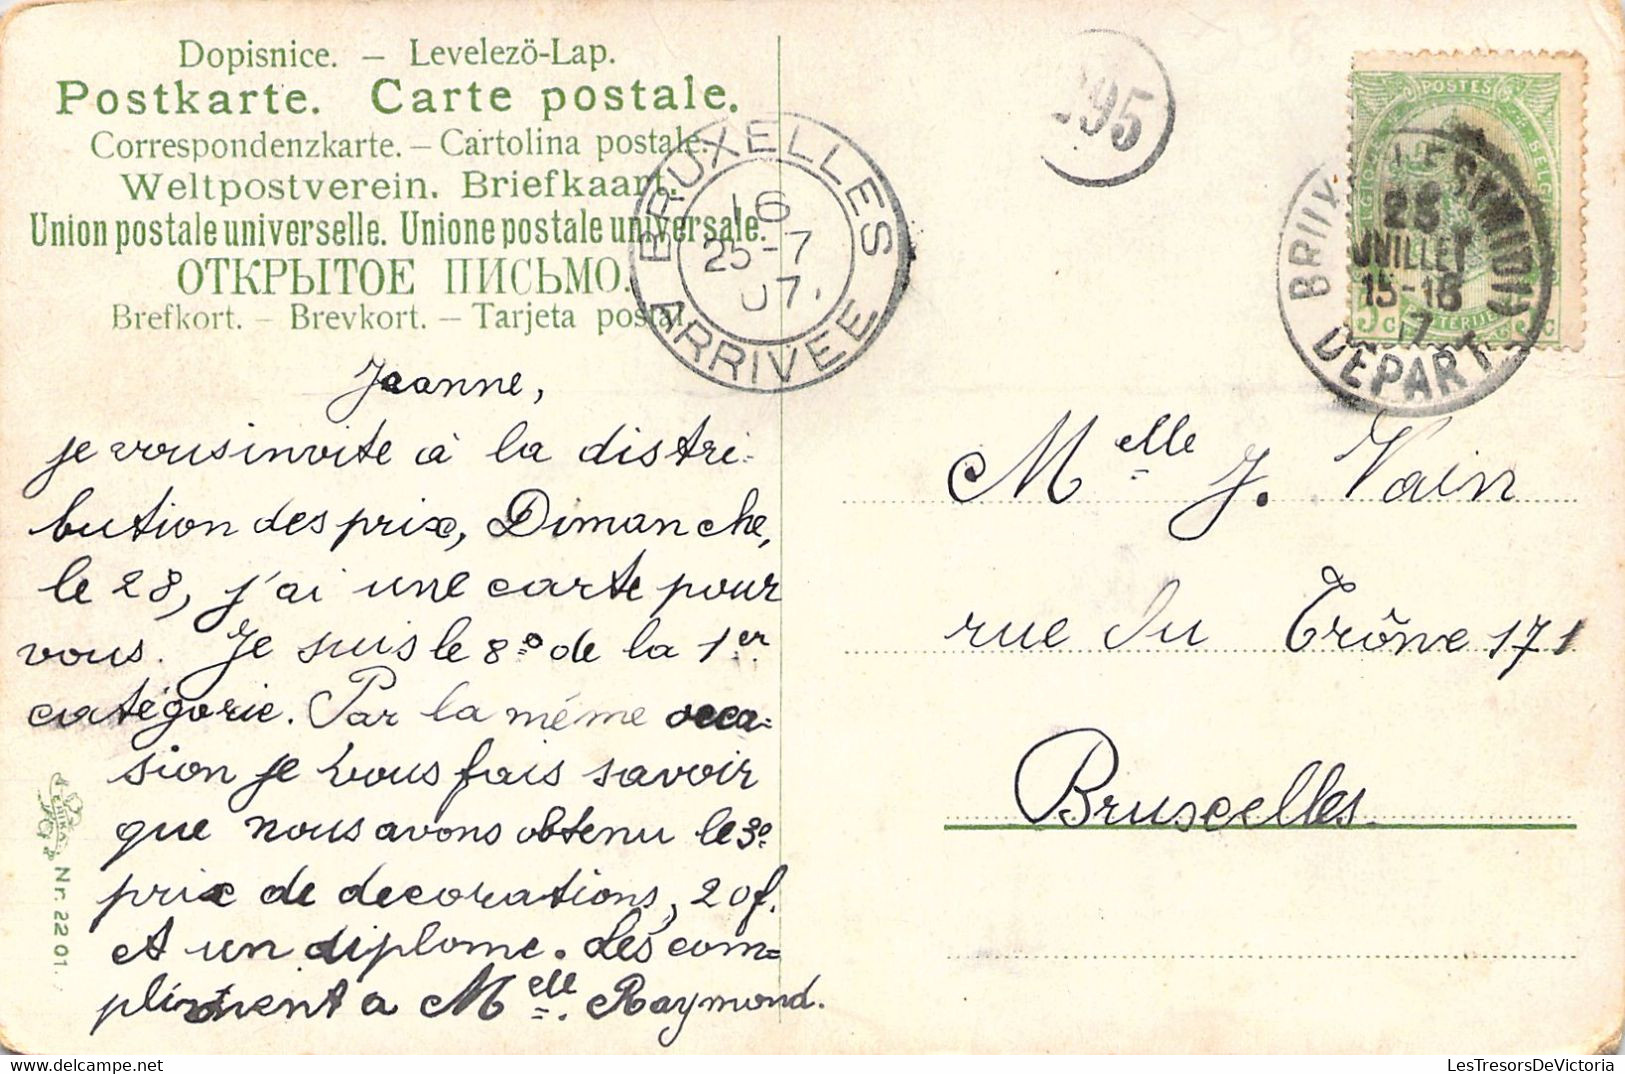 Dopisnice. – Levelező-Lap.
Postkarte. Carte postale.
Correspondenzkarte. – Cartolina postale.
Weltpostverein. Briefkaart.
Union postale universelle. Unione postale universale.
ОТКРЫТОЕ ПИСЬМО.
Brefkort. – Brevkort. – Tarjeta postal.
BRUXELLES
16
25-7
07.
ARRIVEE
195
POSTES
5c
28
JUILLET
15-16
DEPART
Jeanne,
je vous invite à la distri-
bution des prix, Dimanche,
le 28, j'ai une carte pour
vous. Je suis le 8º de la 1er
catégorie. Par la même occa=
sion je vous fais savoir
que nous avons obtenu le 3e
prix de decorations, 20f.
et un diplome. Les com=
pliment a Melle. Raymond.
Melle J. Vain
rue du Trône 171
Bruxelles.
ERIKA
Nr. 2201.
LesTresorsDeVictoria